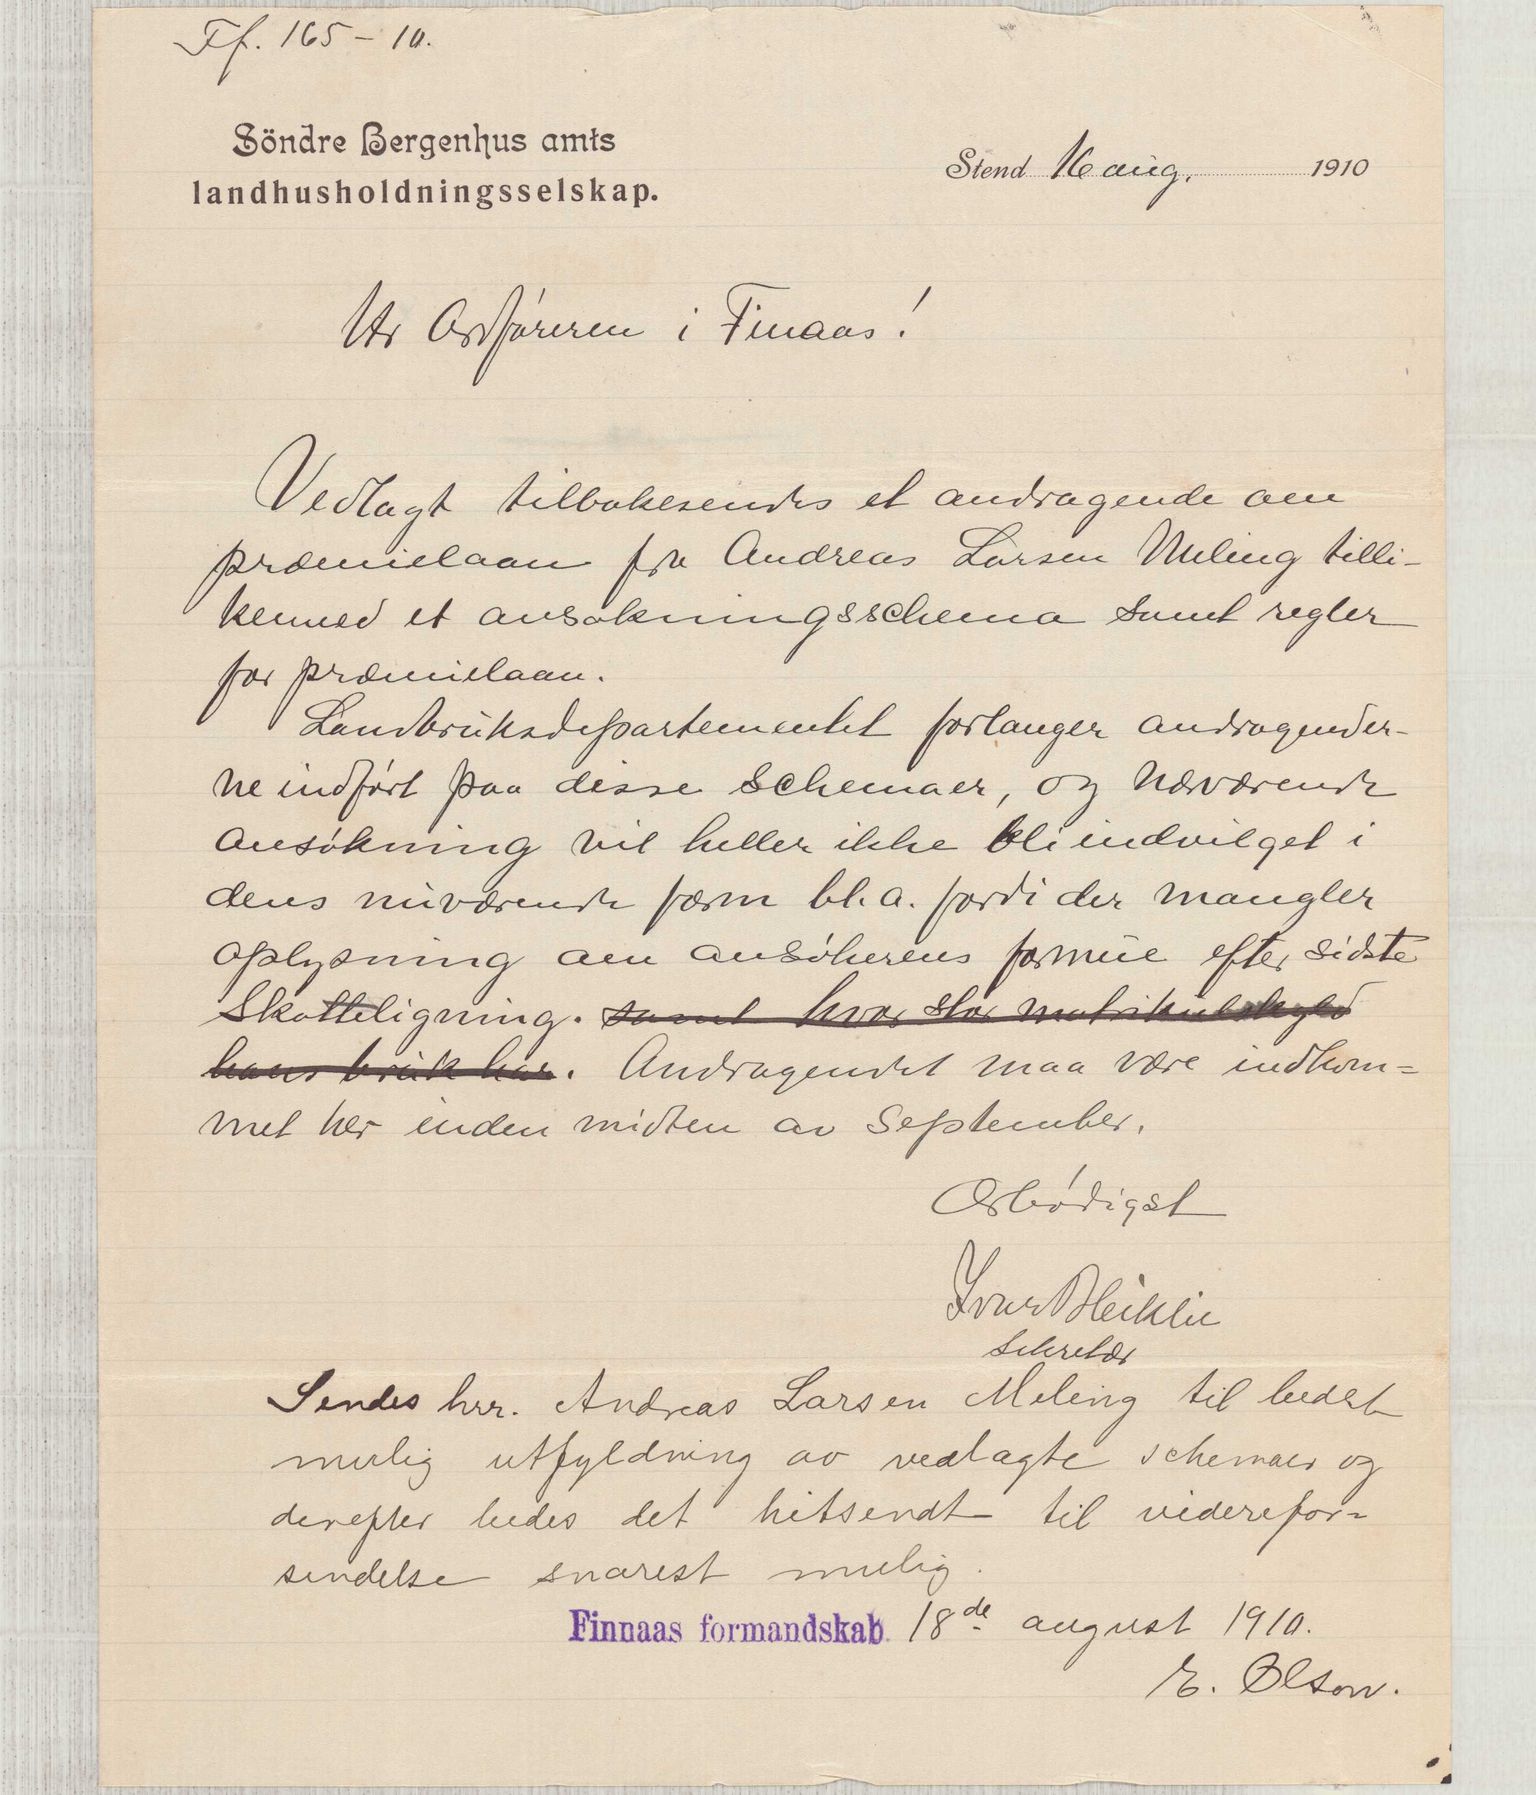 Ff. 165 - 10.
Söndre Bergenhus amts
landhusholdningsselskap.
Stend 16 aug. 1910
Hr Ordføreren i Finaas!
Vedlagt tilbakesendes et andragende om
præmielaan fra Andreas Larsen Meling tilli-
kemed et ansøkningsschema samt regler
for præmielaan.
Landbruksdepartementet forlanger andragender-
ne indført paa disse schemaer, og nærværende
ansøkning vil heller ikke bli indvilget i
dens nuværende form bl. a. fordi der mangler
oplysning om ansøkerens formue efter sidste
Skatteligning. samt hvor stor matrikulskyld
hans bruk har. Andragendet maa være indkom=
met her inden midten av september.
Ærbødigst
Ivar Bleiklie
sekretær
Sendes hrr. Andreas Larsen Meling til bedst
mulig utfyldning av vedlagte schemaer og
derefter bedes det hitsendt til viderefor=
sendelse snarest mulig.
Finnaas formandskab 18de august 1910.
E. Olson.